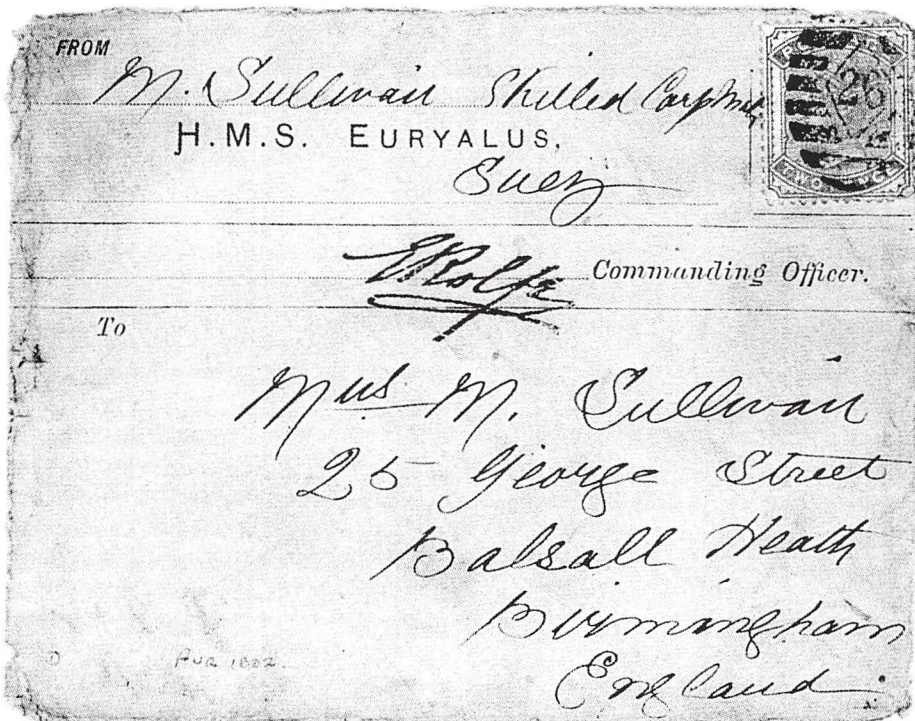 FROM
M. Sullivan Skilled Carp Mate
H.M.S. EURYALUS,
Suez
ERolfe Commanding Officer.
To
Mrs. M. Sullivan
25 George Street
Balsall Heath
Birmingham
England
Aug 1882
26